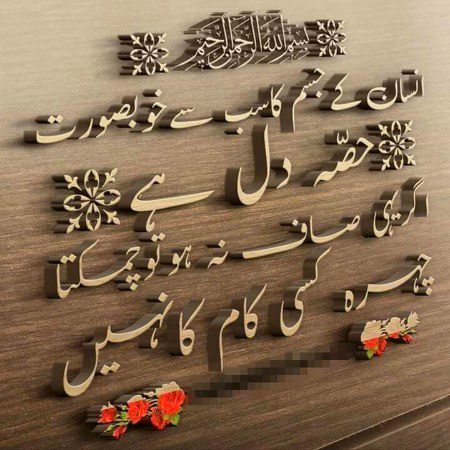 بسم اللہ الرحمن الرحیم
انسان کے جسم کا سب سے خوبصورت
حصّہ دل ہے
اگر یہی صاف نہ ہو تو چمکتا
چہرہ کسی کام کا نہیں